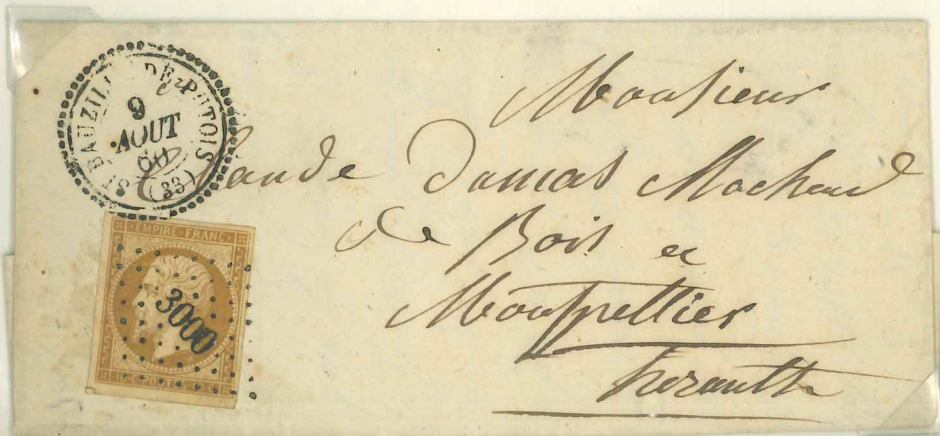 ST BAUZILLE-DE-PUTOIS
9
AOUT
60
(33)
EMPIRE-FRANC
3000
Monsieur
Claude Dumas Machand
de Bois à
Montpellier
herault